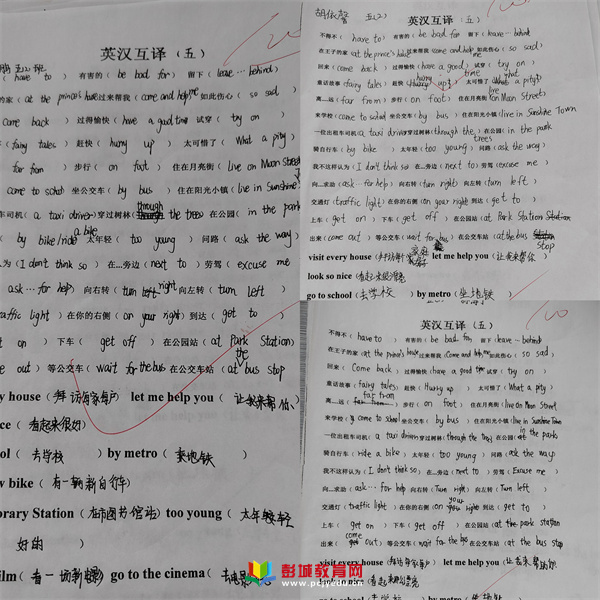 英汉互译（五）
have to ） 有害的（ be bad for ） 留下（ leave…behind ）
的家（at the prince's house）过来帮我（come and help me）如此伤心（ so sad ）
come back ） 过得愉快（ have a good time ） 试穿（ try on ）
（fairy tales） 赶快（ hurry up ） 太可惜了（ What a pity ）
far from ） 步行（ on foot ） 住在月亮街（live on Moon Street）
came to school 坐公交车（ by bus ） 住在阳光小镇（live in Sunshine
车司机（a taxi driver）穿过树林（through the trees）在公园（in the park
by bike/ride a bike ） 太年轻（ too young ） 问路（ ask the way ）
为（I don't think so ） 在…旁边（next to ） 劳驾（ excuse me
ask…for help） 向右转（turn right）向左转（ turn left ）
traffic light ） 在你的右侧（on your right）到达（ get to
on ） 下车（ get off ） 在公园站（at Park Station）
e out ）等公交车（wait for the bus）在公交车站（at the bus stop
y house（拜访每家每户） let me help you（ 让我来帮你
ice（看起来很好）
ol（ 去学校 ）by metro（ 乘地铁 ）
w bike（有一辆新自行车）
brary Station（城市图书馆站）too young（ 太年轻
film（看一场新电影）go to the cinema（ 去电影院
胡依馨 五(2) 英汉互译（五）
不得不（ have to ） 有害的（ be bad for ） 留下（leave…behind）
在王子的家（at the prince's house）过来帮我（come and help me）如此伤心（ so sad ）
回来（ come back ） 过得愉快（have a good time） 试穿（ try on ）
童话故事（fairy tales） 赶快（Hurry up!） 太可惜了（What a pity!）
离…远（ far from ） 步行（ on foot ） 住在月亮街（live on Moon Street）
来学校（come to school）坐公交车（ by bus ） 住在阳光小镇（live in Sunshine Town）
一位出租车司机（a taxi driver）穿过树林（through the trees）在公园（in the park
骑自行车（ by bike ） 太年轻（too young） 问路（ask the way）
我不这样认为（I don't think so）在…旁边（next to ） 劳驾（excuse me
向…求助（ask…for help）向右转（turn right）向左转（ turn left
交通灯（traffic light） 在你的右侧（on your right）到达（ get to
上车（ got on ） 下车（ get off ） 在公园站（at Park Station
出来（come out ）等公交车（wait for bus）在公交车站（at the bus stop
visit every house（拜访每家 let me help you（让我来帮你
look so nice（看起来
go to school（去学校 ）by metro（坐地铁）
英汉互译（五）
不得不（ have to ） 有害的（ be bad for ） 留下（leave…behind
在王子的家（at the prince's house过来帮我（Come and help me）如此伤心（ so sad
回来（ Come back ） 过得愉快（have a good time）试穿（try on
童话故事（fairy tales） 赶快（Hurry up ） 太可惜了（What a pity
离…远（far from） 步行（ on foot ） 住在月亮街（live on Moon Street
来学校（come to school）坐公交车（ by bus ） 住在阳光小镇（live in Sunshine Town
一位出租车司机（a taxi driver）穿过树林（through the trees）在公园（in the parks
骑自行车（ride a bike） 太年轻（too young） 问路（ask the way
我不这样认为（I don't think so）在…旁边（next to ）劳驾（Excuse me
向…求助（ask…for help 向右转（Turn right）向左转（Turn left
交通灯（traffic light） 在你的右侧（on your right）到达（ get to
上车（ get on ） 下车（get off ） 在公园站（at the park station
出来（come out）等公交车（wait for the bus 在公交车站（at the bus stop
visit every house（ let me help you（
看起来
彭城教育网